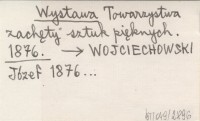 Wystawa Towarzystwa
zachęty sztuk pięknych.
1876. → WOJCIECHOWSKI
Józef 1876...